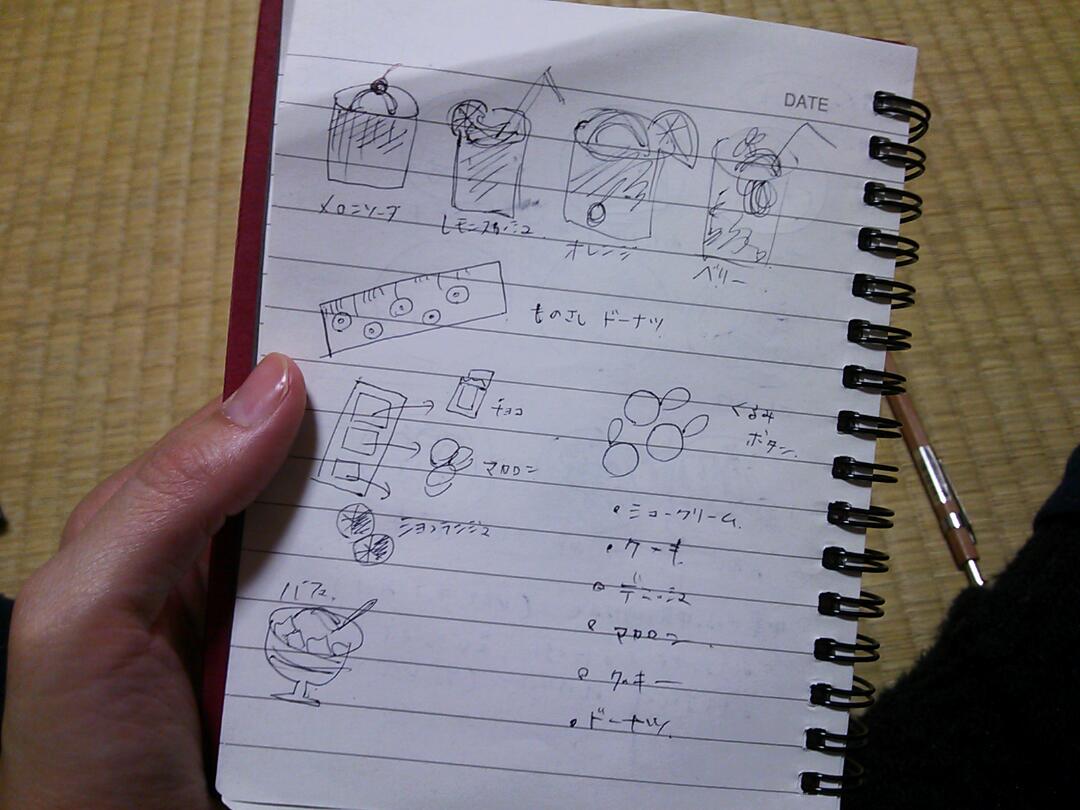 DATE
メロンソーダ
レモンスカッシュ
オレンジ
ベリー
ものさし ドーナツ
チョコ
くるみ
ボタン
マカロン
ショコランジュ
パフェ
・シュークリーム
・ケーキ
・マカロン
・クッキー
・ドーナツ